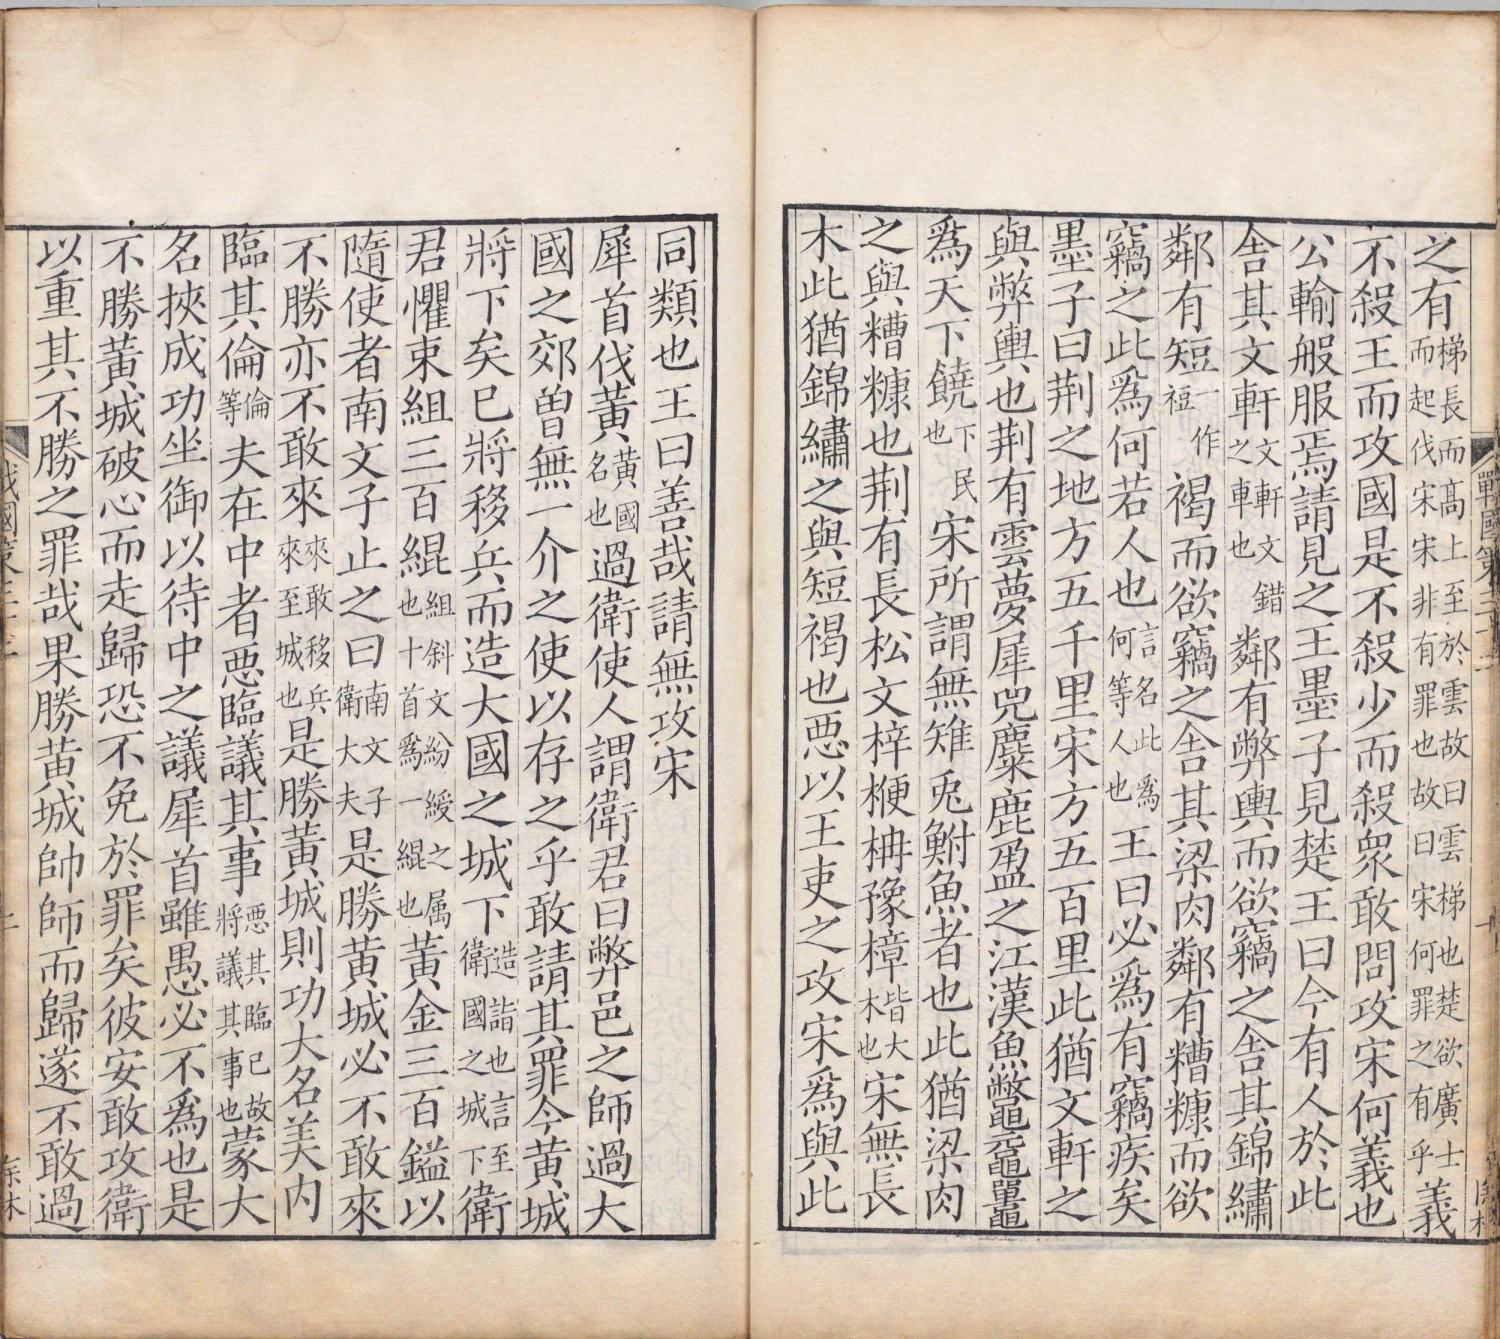 戰國策三十二
之有梯長而高上至於雲故曰雲梯也楚欲廣士而起伐宋宋非有罪也故曰宋何罪之有乎義
不殺王而攻國是不殺少而殺眾敢問攻宋何義也
公輸般服焉請見之王墨子見楚王曰今有人於此
舍其文軒文軒文錯之車也鄰有弊輿而欲竊之舍其錦繡
鄰有短一作裋褐而欲竊之舍其梁肉鄰有糟糠而欲
竊之此為何若人也言名此為何等人也王曰必為有竊疾矣
墨子曰荆之地方五千里宋方五百里此猶文軒之
與弊輿也荆有雲夢犀兕麋鹿盈之江漢魚鱉黿鼉
為天下饒下民也宋所謂無雉兎鮒魚者也此猶梁肉
之與糟糠也荆有長松文梓楩枏豫樟皆大木也宋無長
木此猶錦繡之與短褐也惡以王吏之攻宋為與此
同類也王曰善哉請無攻宋
犀首伐黃黃國名也過衛使人謂衛君曰弊邑之師過大
國之郊曾無一介之使以存之乎敢請其罪今黃城
將下矣已將移兵而造大國之城下造詣也言至衛國之城下衛
君懼束組三百緄組斜文紛綬之属也十首為一緄也黃金三百鎰以
隨使者南文子止之曰南文子衛大夫是勝黃城必不敢來
不勝亦不敢來來敢移兵來至城也是勝黃城則功大名美内
臨其倫倫等夫在中者惡臨議其事惡其臨已故將議其事也蒙大
名挾成功坐御以待中之議犀首雖愚必不為也是
不勝黃城破心而走歸恐不免於罪矣彼安敢攻衛
以重其不勝之罪哉果勝黃城帥師而歸遂不敢過